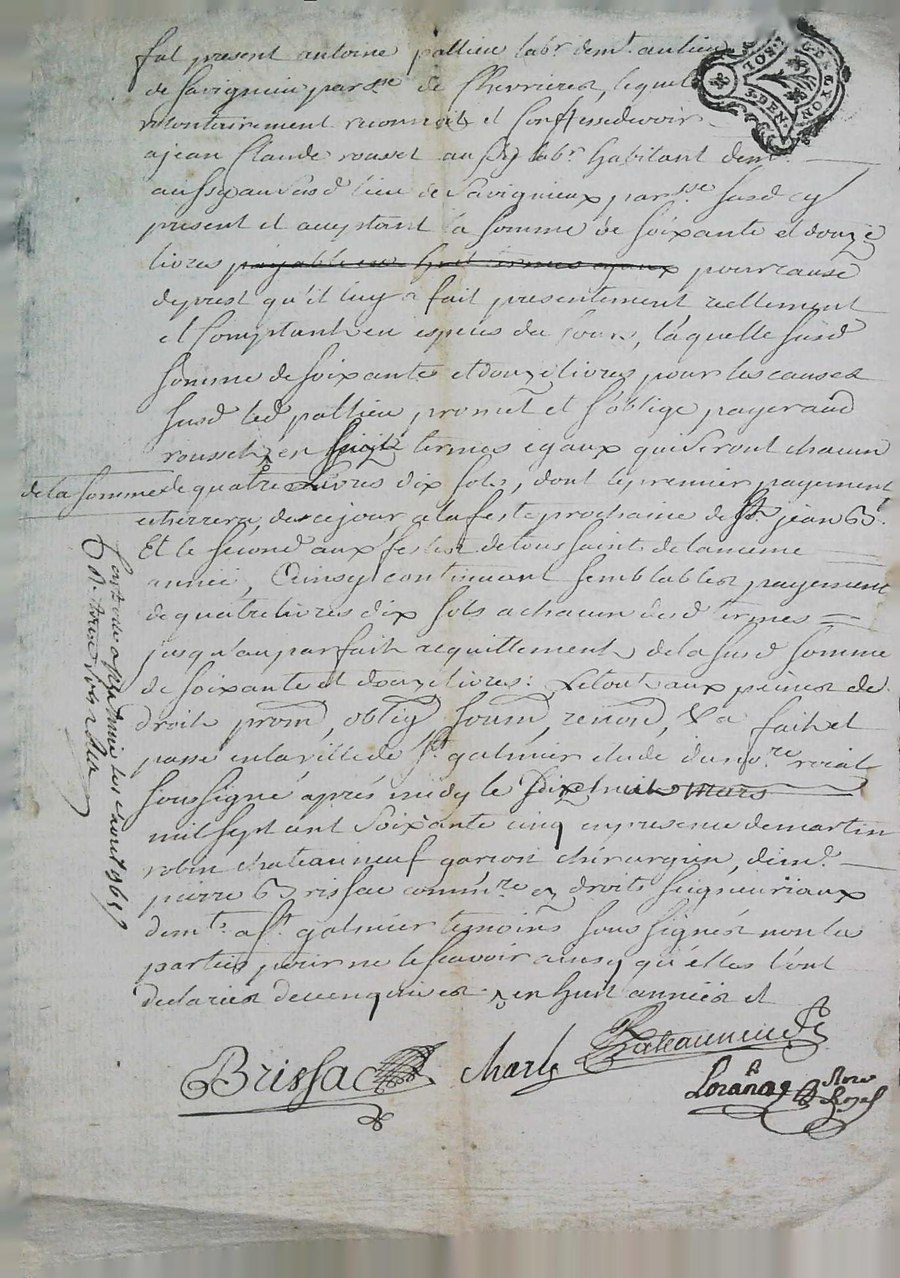 fut present antoine pallieu labr. demt. au lieu
de Savignieu parsse de Chevrieres, lequel
volontairement reconnoit et Confesse devoir
a jean Claude rousset aussy labr. habitant demt.
aussy au susd lieu de Savignieux parsse susd cy
present et acceptant la somme de soixante et douze
livres payable en huit termes egaux pour cause
de prest qu'il luy a fait presentement reellement
et Comptant en especes du Cours, laquelle susd
somme de soixante et douze livres pour les causes
susd led pallieu promet et s'oblige payer aud
rousset en seize termes egaux qui seront chacun
de la somme de quatre Livres dix sols, dont le premier payement
echerrera de ce jour a la feste prochaine de St jean Bt.
Et le second aux festes de toussaint de la meme
année, Ainsy continuant semblables payement
de quatre livres dix sols a chacun desd termes
jusqu'au parfait acquittement de la susd somme
de soixante et douze livres: Le tout aux peines de
droit, prom, oblig, soum, renon, &a fait et
passé en la ville de St. galmier etude du nore roial
soussigné aprés midy le Dix huit mars
mil sept cent soixante cinq en presence de martin
robin chateauneuf garcon chirurgien, demt.
pierre Brissac commre ez droits seigneuriaux
demts. a St. galmier temoins soussignés non les
parties pour ne le scavoir ainsy qu'elles l'ont
declarées de ce enquises en huit années et
Brissac
Charle Chateauneuf
Loranch
nore Royal
GEN LYON
SOL
DEN